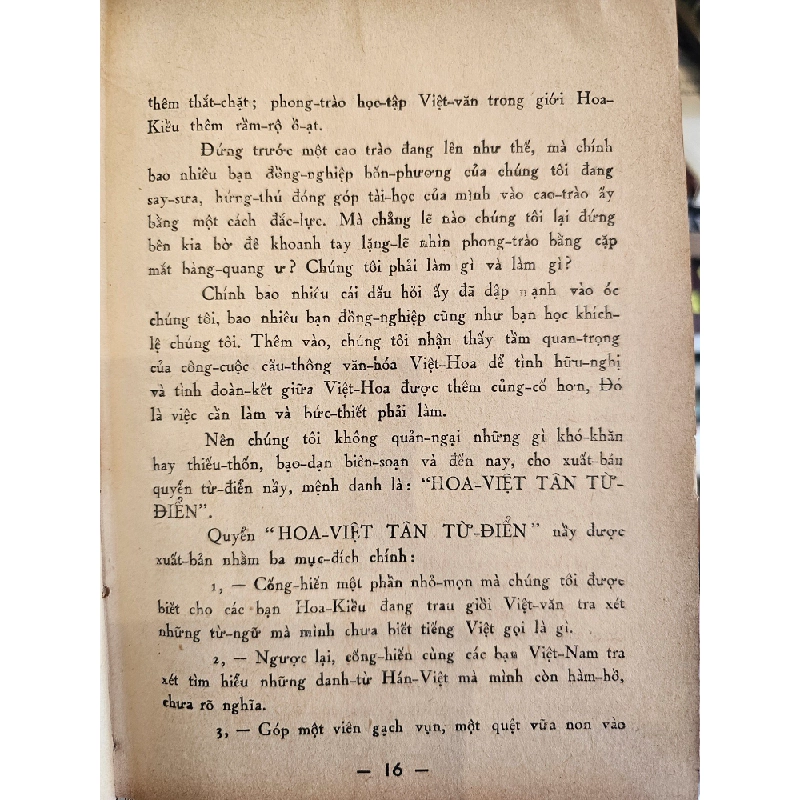 thêm thắt-chặt; phong-trào học-tập Việt-văn trong giới Hoa-
Kiều thêm rầm-rộ ồ-ạt.
Đứng trước một cao trào đang lên như thế, mà chính
bao nhiêu bạn đồng-nghiệp bổn-phương của chúng tôi đang
say-sưa, hứng-thú đóng góp tài-học của mình vào cao-trào ấy
bằng một cách đắc-lực. Mà chẳng lẽ nào chúng tôi lại đứng
bên kia bờ để khoanh tay lặng-lẽ nhìn phong-trào bằng cặp
mắt bàng-quang ư? Chúng tôi phải làm gì và làm gì?
Chính bao nhiêu cái dấu hỏi ấy đã dập mạnh vào óc
chúng tôi, bao nhiêu bạn đồng-nghiệp cũng như bạn học khích-
lệ chúng tôi. Thêm vào, chúng tôi nhận thấy tầm quan-trọng
của công-cuộc cầu-thông văn-hóa Việt-Hoa để tình hữu-nghị
và tình đoàn-kết giữa Việt-Hoa được thêm củng-cố hơn, Đó
là việc cần làm và bức-thiết phải làm.
Nên chúng tôi không quản-ngại những gì khó-khăn
hay thiếu-thốn, bạo-dạn biên-soạn và đến nay, cho xuất-bản
quyển từ-điển nầy, mệnh danh là: "HOA-VIỆT TÂN TỪ-
ĐIỂN".
Quyển "HOA-VIỆT TÂN TỪ-ĐIỂN" nầy được
xuất-bản nhằm ba mục-đích chính:
1, — Cống-hiến một phần nhỏ-mọn mà chúng tôi được
biết cho các bạn Hoa-Kiều đang trau giồi Việt-văn tra xét
những từ-ngữ mà mình chưa biết tiếng Việt gọi là gì.
2, — Ngược lại, cống-hiến cùng các bạn Việt-Nam tra
xét tìm hiểu những danh-từ Hán-Việt mà mình còn hàm-hồ,
chưa rõ nghĩa.
3, — Góp một viên gạch vụn, một quệt vữa non vào
— 16 —